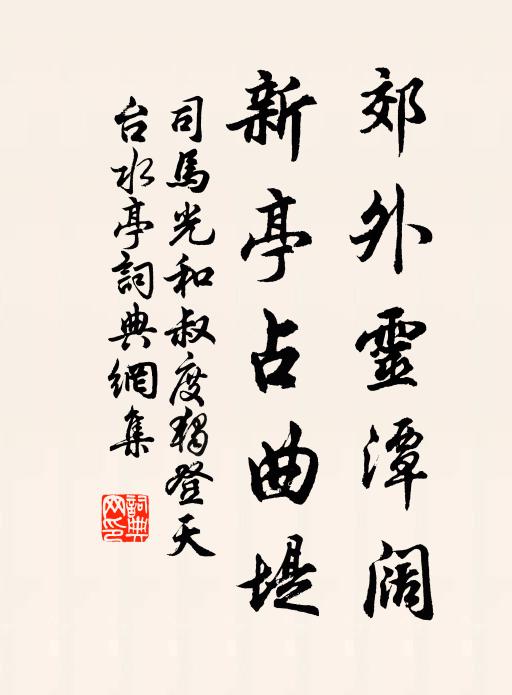 郊外靈潭闊
新亭占曲堤
司馬光和叔度獨登天
台水亭詞典網集
詞典
网印